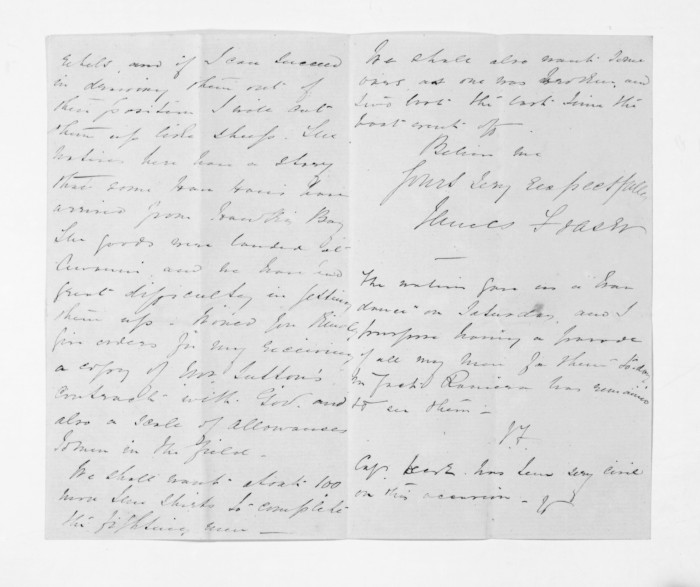 rebels, and if I can succeed
in drawing them out of
their position I will cut
them up like sheep. The
natives here have a story
that some have
arrived from Bay
The goods were landed at
and we have had
great difficulty in getting
them up. Would you kindly
give orders for my receiving
a copy of Mr. Sutton's
contract with Gov. and
also a scale of allowances
to men in the field.
We shall want about 100
more shirts to complete
the fighting men —
We shall also want some
oars as one was broken and
two lost the last time the
boat went off
Believe me
Yours Very Respectfully
James Fraser
The natives gave us a war
dance on Saturday, and I
purpose having a parade
of all my men for them to-day
has remained
to see them —
J.F.
Cap. has been very civil
on this occasion — J.F.